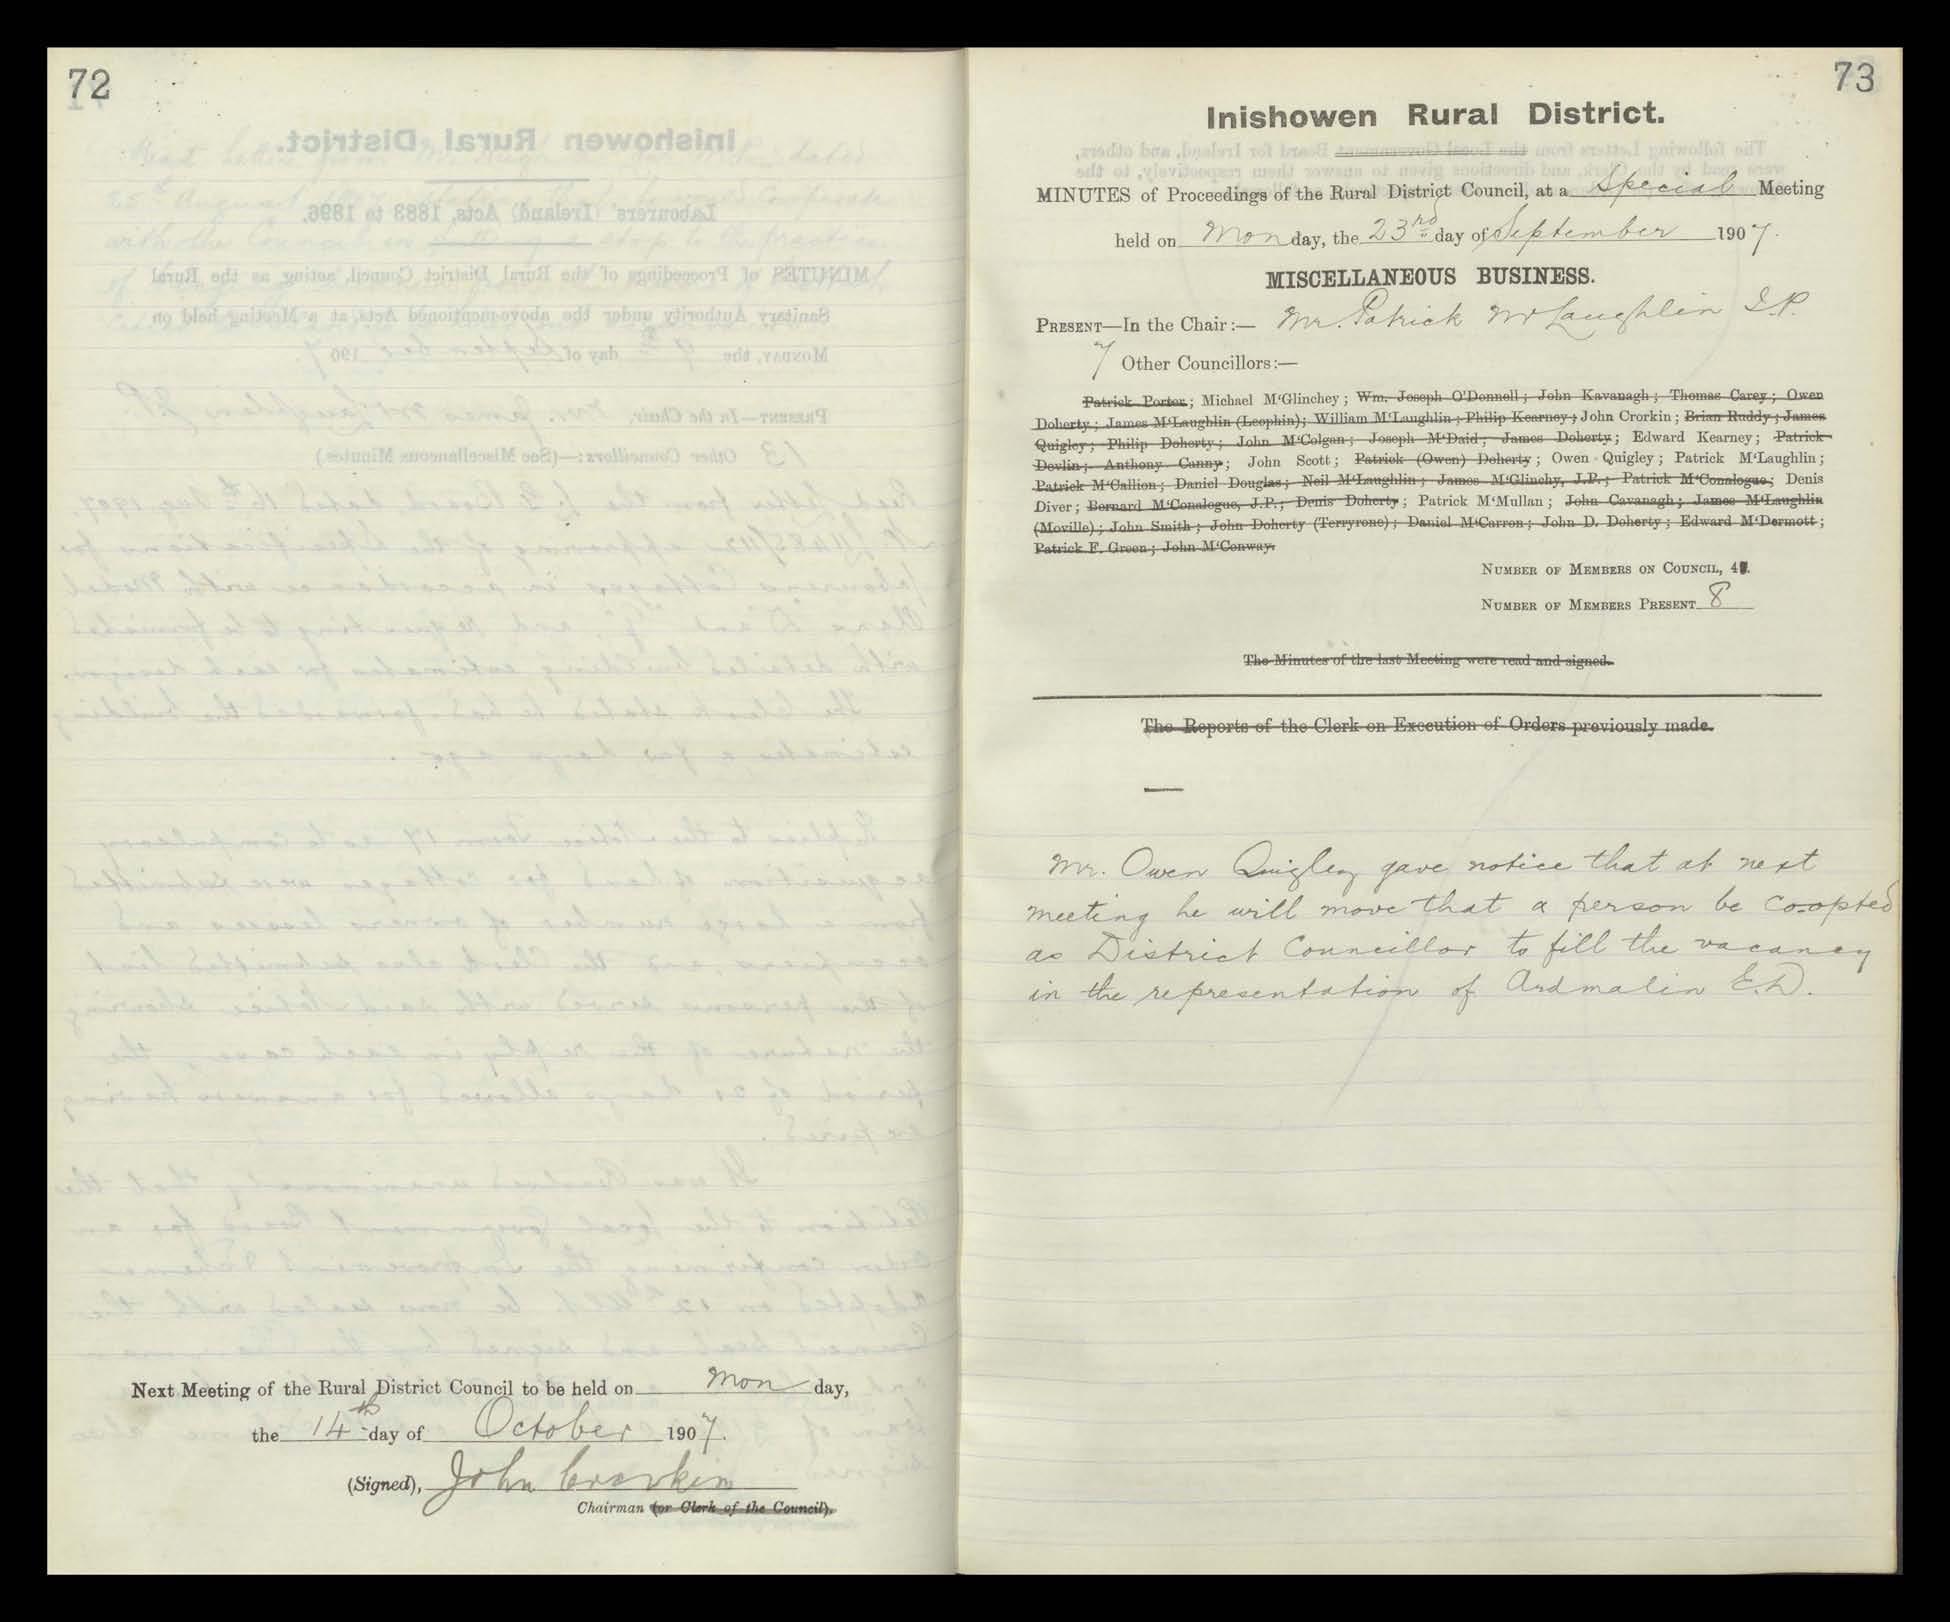 72
Next Meeting of the Rural District Council to be held on Monday,
the 14th day of October 1907.
(Signed), John Crorkin
Chairman (or Clerk of the Council).
73
Inishowen Rural District.
MINUTES of Proceedings of the Rural District Council, at a Special Meeting
held on Monday, the 23rd day of September 1907.
MISCELLANEOUS BUSINESS.
PRESENT—In the Chair:— Mr. Patrick McLaughlin J.P.
7 Other Councillors:—
Patrick Porter; Michael M'Glinchey; Wm. Joseph O'Donnell; John Kavanagh; Thomas Carey; Owen
Doherty; James M'Laughlin (Leophin); William M'Laughlin; Philip Kearney; John Crorkin; Brian Ruddy; James
Quigley; Philip Doherty; John M'Colgan; Joseph M'Daid; James Doherty; Edward Kearney; Patrick
Devlin; Anthony Canny; John Scott; Patrick (Owen) Doherty; Owen Quigley; Patrick M'Laughlin;
Patrick M'Callion; Daniel Douglas; Neil M'Laughlin; James M'Glinchy, J.P.; Patrick M'Conalogue; Denis
Diver; Bernard M'Conalogue, J.P.; Denis Doherty; Patrick M'Mullan; John Cavanagh; James M'Laughlin
(Moville); John Smith; John Doherty (Terryrone); Daniel M'Carron; John D. Doherty; Edward M'Dermott;
Patrick F. Green; John M'Conway.
NUMBER OF MEMBERS ON COUNCIL, 4
NUMBER OF MEMBERS PRESENT 8
The Minutes of the last Meeting were read and signed.
The Reports of the Clerk on Execution of Orders previously made.
Mr. Owen Quigley gave notice that at next
meeting he will move that a person be co-opted
as District Councillor to fill the vacancy
in the representation of Ardmalin E.D.